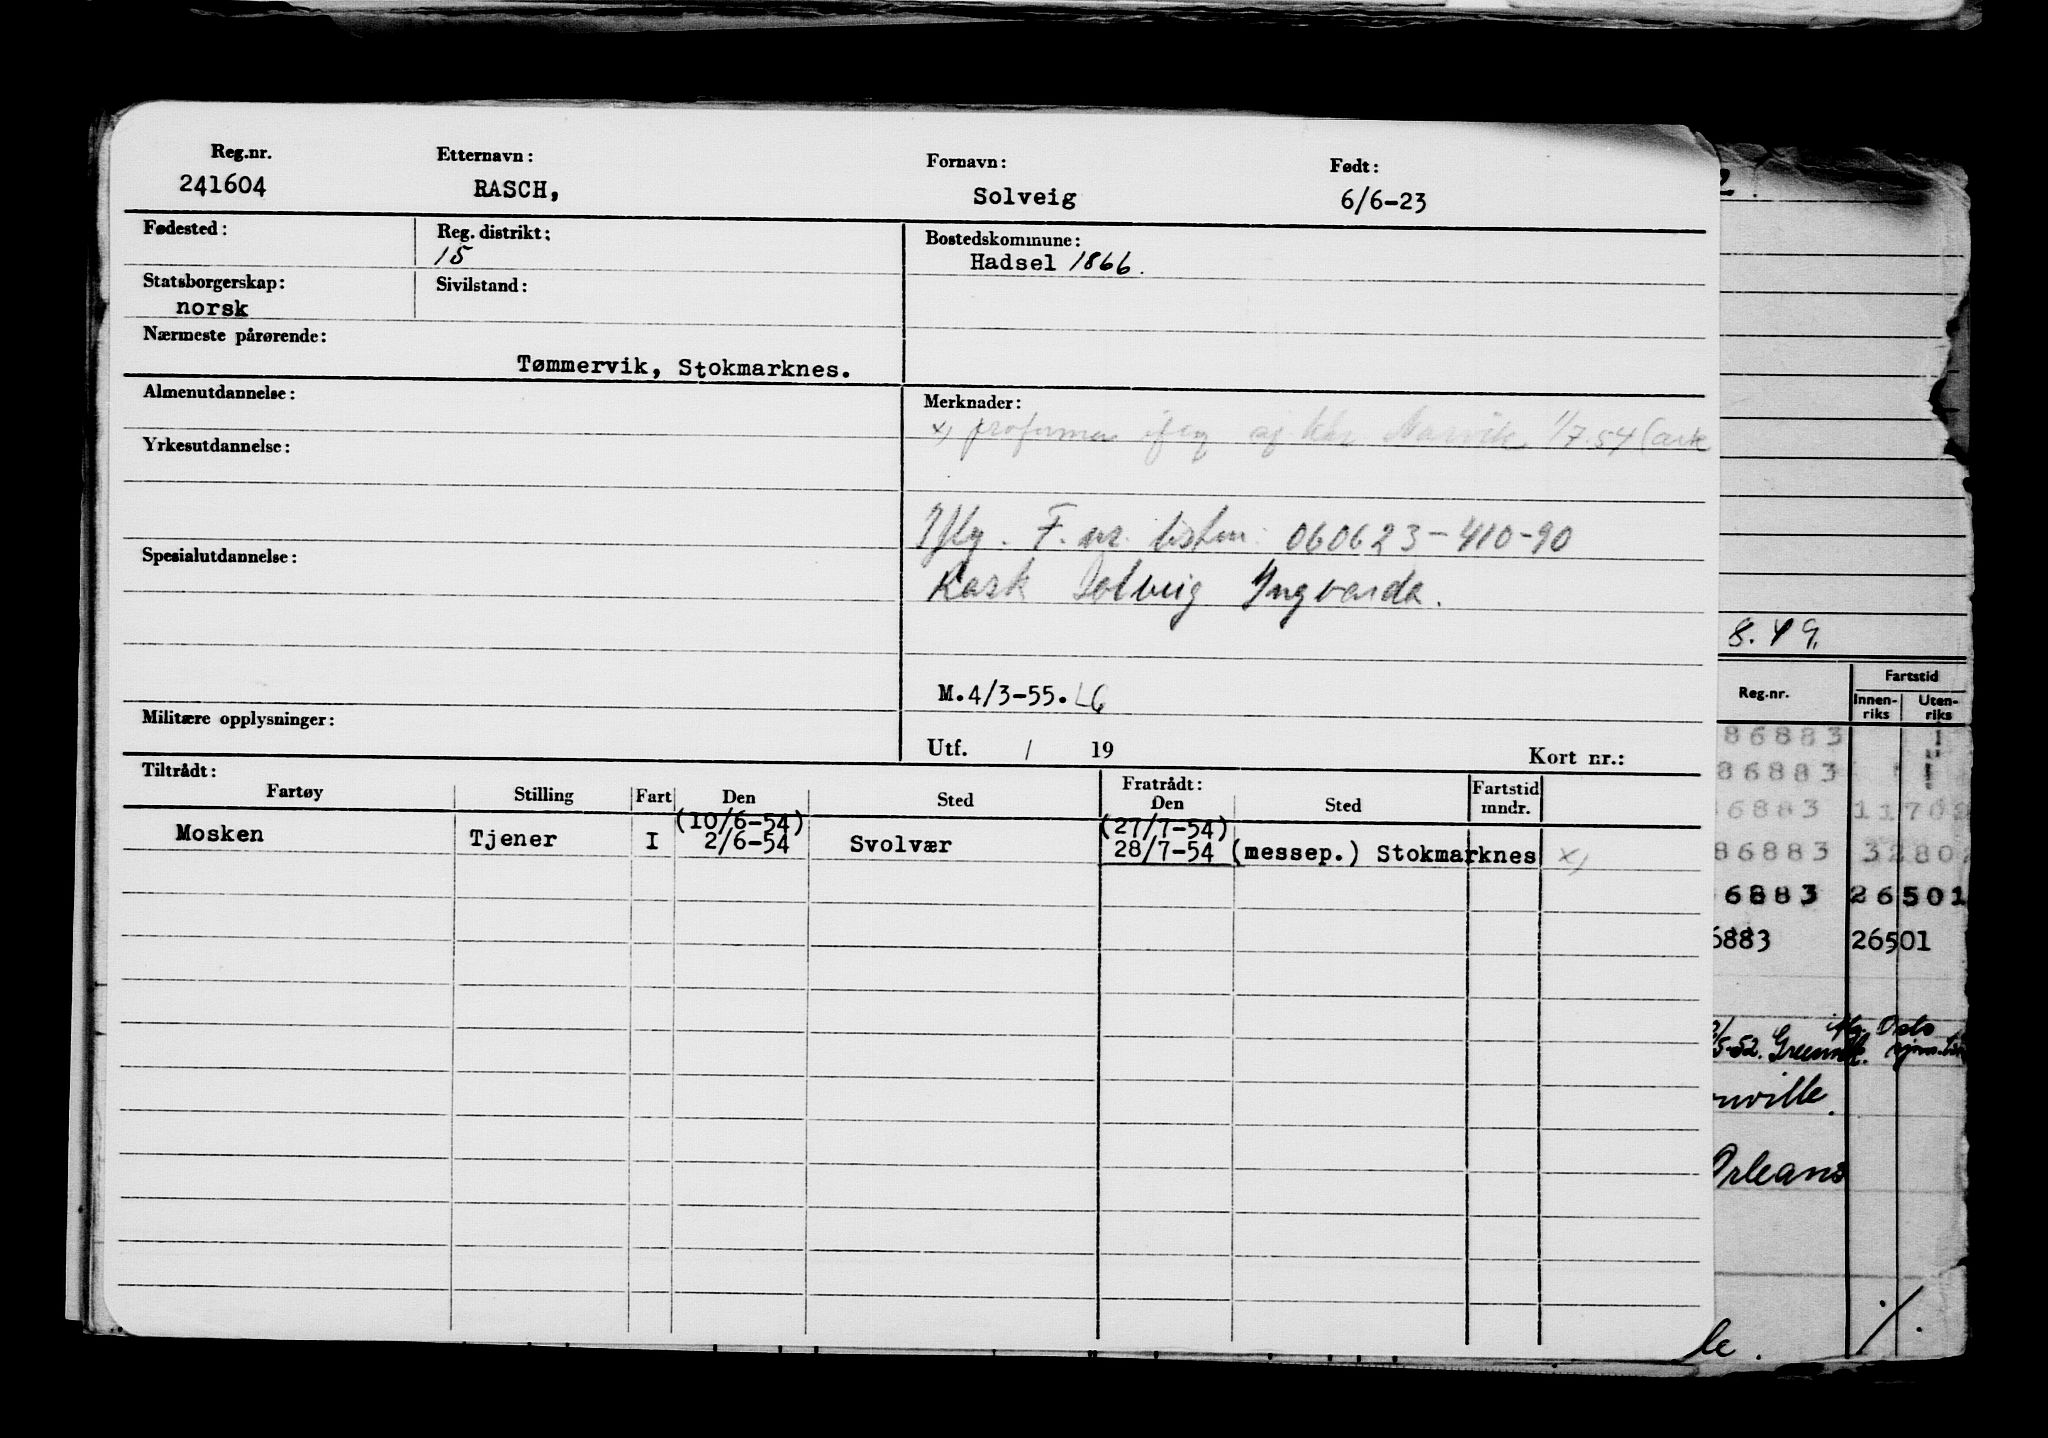 Reg.nr. Etternavn: Fornavn: Født:
241604 RASCH, Solveig 6/6-23
Fødested: Reg. distrikt: Bostedskommune:
15 Hadsel 1866.
Statsborgerskap: Sivilstand:
norsk
Nærmeste pårørende:
Tømmervik, Stokmarknes.
Almenutdannelse: Merknader:
x) proforma iflg Narvik 1/7.54 (
Yrkesutdannelse:
Iflg. F. nr. listen: 060623-410-90
Spesialutdannelse:
Rask Solveig Ingvarda.
M.4/3-55. LG
Militære opplysninger:
Utf. / 19 Kort nr.:
Tiltrådt: Fratrådt:
Fartøy Stilling Fart Den Sted Den Sted Fartstid mndr.
(10/6-54) (27/7-54)
Mosken Tjener I 2/6-54 Svolvær 28/7-54 (messep.) Stokmarknes x)
2.
8.49.
Reg.nr. Fartstid
Innen-riks Uten-riks
86883 1
86883 1
6883
86883
6883 26501
6883 26501
5-52.
Orleans